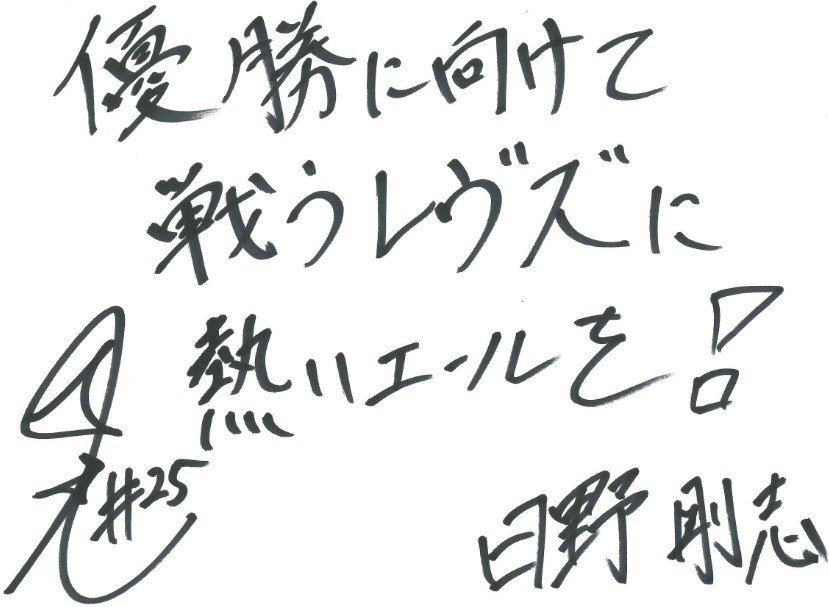 優勝に向けて
戦うレヴズに
熱いエールを!
#25
日野 剛志